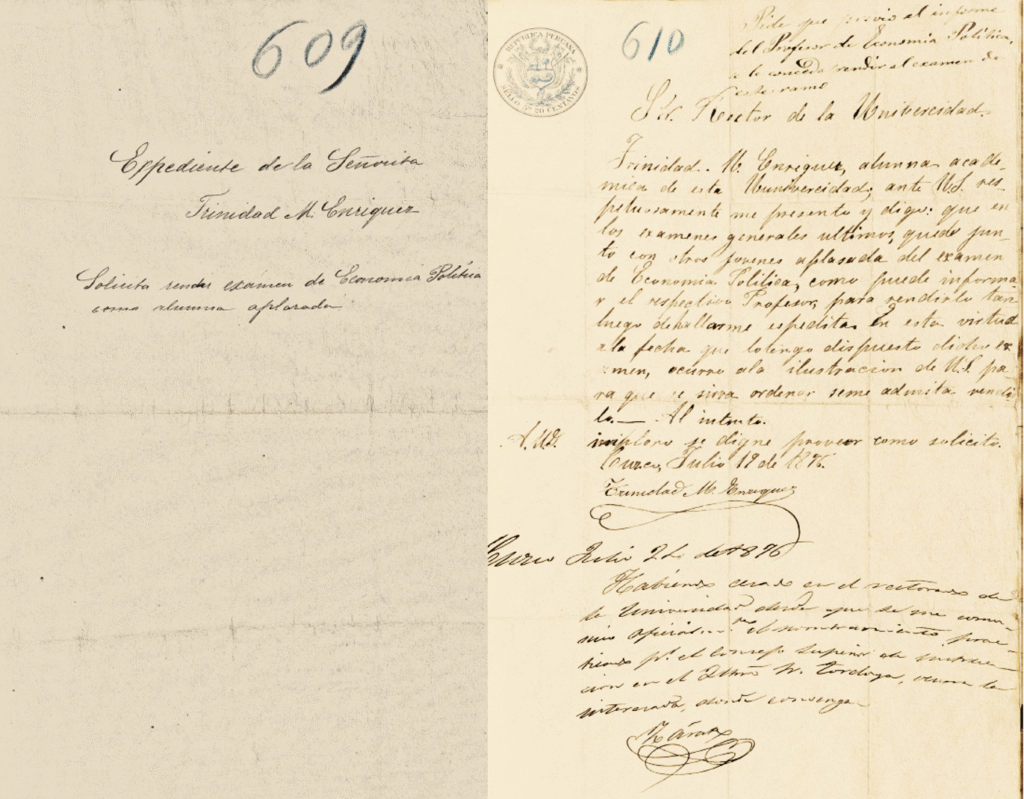 609
Expediente de la Señorita
Trinidad M. Enriquez
Solicita rendir exámen de Economia Politica
como alumna aplasada
610
REPUBLICA PERUANA
SELLO 5º 20 CENTAVOS
Pide que previo el informe
del Profesor de Economia Politica,
se le conceda rendir el examen de
este ramo
Sr. Rector de la Univercidad.
Trinidad M. Enriquez, alumna acade-
mica de esta Wuniversidad, ante U.S. res-
petuosamente me presento y digo: que en
los examenes generales ultimos, quedé jun-
to con otros jovenes aplasada del examen
de Economia Politica, como puede informa
r el respectivo Profesor, para rendirlo tan
luego de hallarme espedita. En esta virtud
a la fecha que lo tengo dispuesto dicho ex
men, ocurro a la ilustracion de U.S. pa-
ra que se sirva ordenar se me admita rendi
lo.— Al intento.
A. U.S. imploro se digne proveer como solicito.
Cuzco, Julio 19 de 1876.
Trinidad M. Enriquez
Cuzco Julio 24 de 1876
Habiendo cesado en el rectorado de
la Universidad desde que se me comu-
nicó oficial el nombramiento
pr. el Consejo Superior de Instruc-
cion en el Dr. Tordoya, ocurra la
interesada, donde convenga